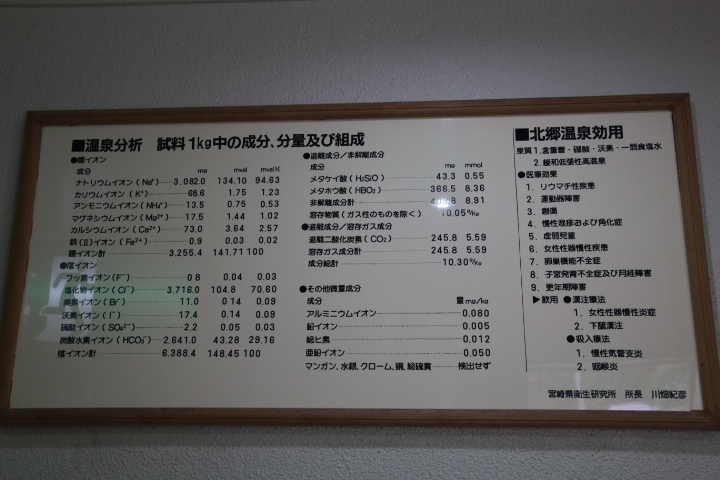 ■温泉分析 試料1kg中の成分、分量及び組成
●陽イオン
成分 mg mval mval%
ナトリウムイオン (Na⁺) 3.082.0 134.10 94.63
カリウムイオン (K⁺) 68.6 1.75 1.23
アンモニウムイオン (NH₄⁺) 13.5 0.75 0.53
マグネシウムイオン (Mg²⁺) 17.5 1.44 1.02
カルシウムイオン (Ca²⁺) 73.0 3.64 2.57
鉄(Ⅱ)イオン (Fe²⁺) 0.9 0.03 0.02
陽イオン計 3,255.4 141.71 100
●陰イオン
フッ素イオン (F⁻) 0.8 0.04 0.03
塩化物イオン (Cl⁻) 3,716.0 104.8 70.60
臭素イオン (Br⁻) 11.0 0.14 0.09
沃素イオン (I⁻) 17.4 0.14 0.09
硫酸イオン (SO₄²⁻) 2.2 0.05 0.03
炭酸水素イオン (HCO₃⁻) 2,641.0 43.28 29.16
陰イオン計 6,388.4 148.45 100
●遊離成分/非解離成分
成分 mg mmol
メタケイ酸 (H₂SiO) 43.3 0.55
メタホウ酸 (HBO₂) 366.5 8.36
非解離成分計 8.91
溶存物質 (ガス性のものを除く) 10.05g/kg
●遊離成分/溶存ガス成分
遊離二酸化炭素 (CO₂) 245.8 5.59
溶存ガス成分計 245.8 5.59
成分総計 10.30g/kg
●その他微量成分
成分 量mg/kg
アルミニウムイオン 0.080
鉛イオン 0.005
総ヒ素 0.012
亜鉛イオン 0.050
マンガン、水銀、クローム、銅、総硫黄 検出せず
■北郷温泉効用
泉質 1. 含重曹・硼酸・沃素・一弱食塩水
2. 緩和低張性高温泉
●医療効果
1. リウマチ性疾患
2. 運動器障害
3. 創傷
4. 慢性湿疹および角化症
5. 虚弱児童
6. 女性性器慢性疾患
7. 卵巣機能不全症
8. 子宮発育不全症及び月経障害
9. 更年期障害
▶飲用 ●漢注療法
1. 女性性器慢性炎症
2. 下腿漢注
●吸入療法
1. 慢性気管支炎
2. 咽喉炎
宮崎県衛生研究所 所長 川畑紀彦